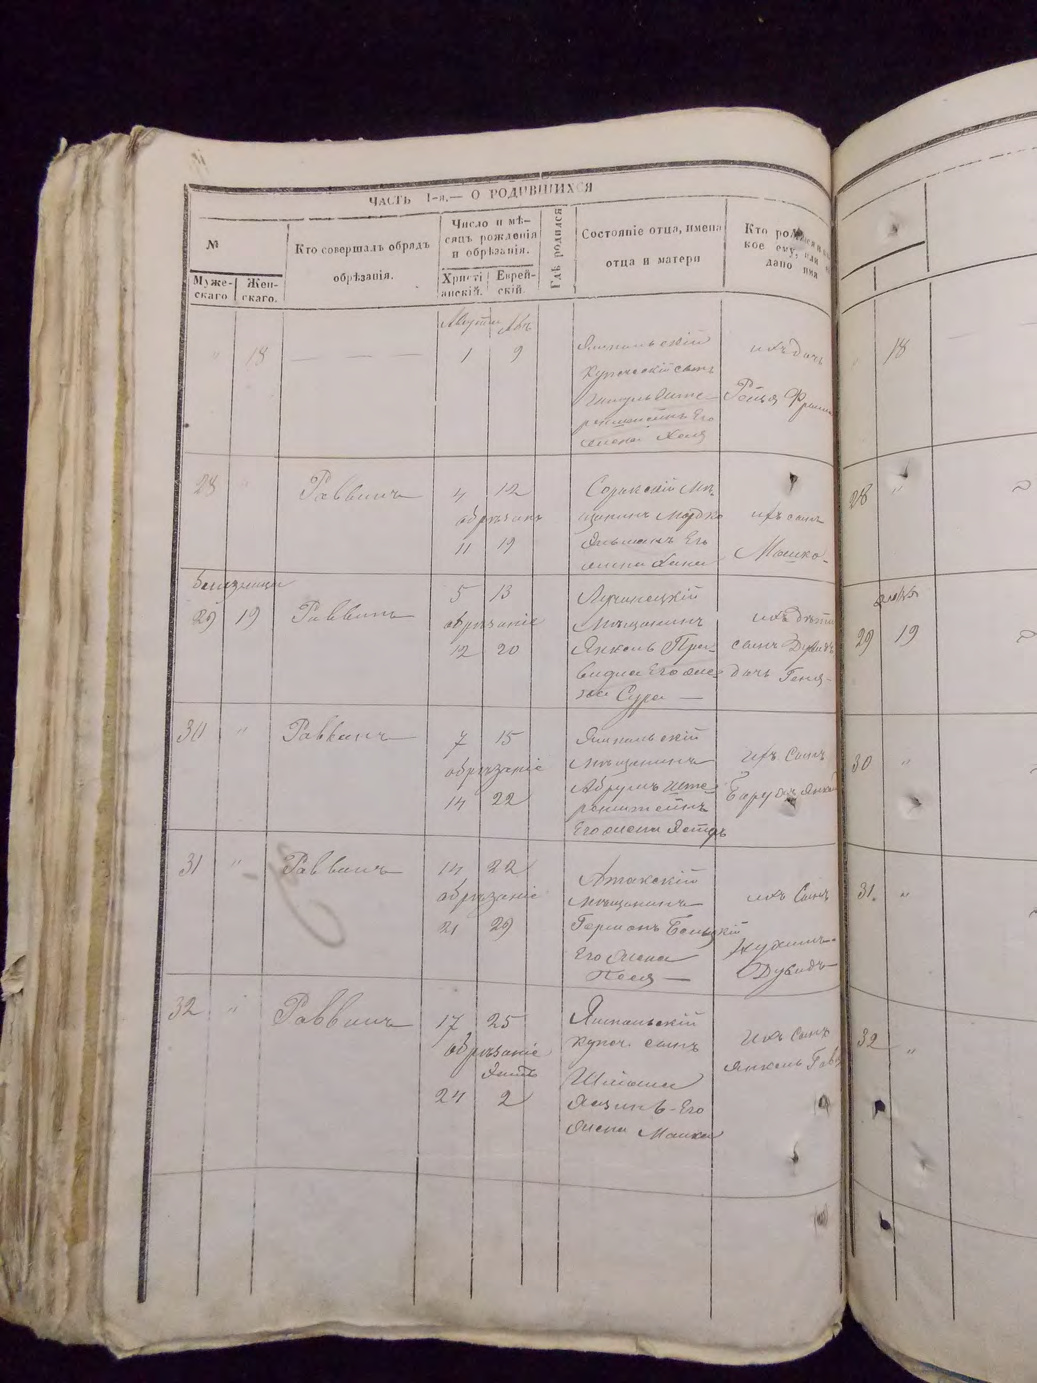 ЧАСТЬ I-я.— О РОДИВШИХСЯ
№
Муже-
скаго
Жен-
скаго.
Кто совершалъ обрядъ
обрѣзанія.
Число и мѣ-
сяцъ рожденія
и обрѣзанія.
Христі
анскій.
Еврей-
скій.
Гдѣ родился
Состояніе отца, имена
отца и матери
Кто
кое ему, или
дано имя
Августъ Авъ
18 1 9
Ямпольскій
купеческій сынъ
Его
жена Хая
ихъ дочь
Рейзя
18
28 " Раввинъ 4 12
обрѣзанъ
11 19
Сорокскій мѣ-
щанинъ Мордко
Его
жена Хана
ихъ сынъ
Мошко
28 "
Близнецы
29 19 Раввинъ 5 13
обрѣзаніе
12 20
Лучинецкій
мѣщанинъ
Янкель
Его же-
на Сура —
ихъ дѣти
сынъ Дувидъ
дочь Геня
29 19
30 " Раввинъ 7 15
обрѣзаніе
14 22
Ямпольскій
мѣщанинъ
Абрумъ Ште-
Его жена Эстеръ
ихъ сынъ
Борухъ Янкель
30 "
31 " Раввинъ 14 22
обрѣзаніе
21 29
Атакскій
мѣщанинъ
Германъ Бельцкій
Его жена
Песя —
ихъ сынъ
Нухимъ-
Дувидъ
31. "
32 " Раввинъ 17 25
обрѣзаніе
24 2
Ямпольскій
купеч. сынъ
Шліома
Его
жена Малка
ихъ сынъ
Янкель
32 "